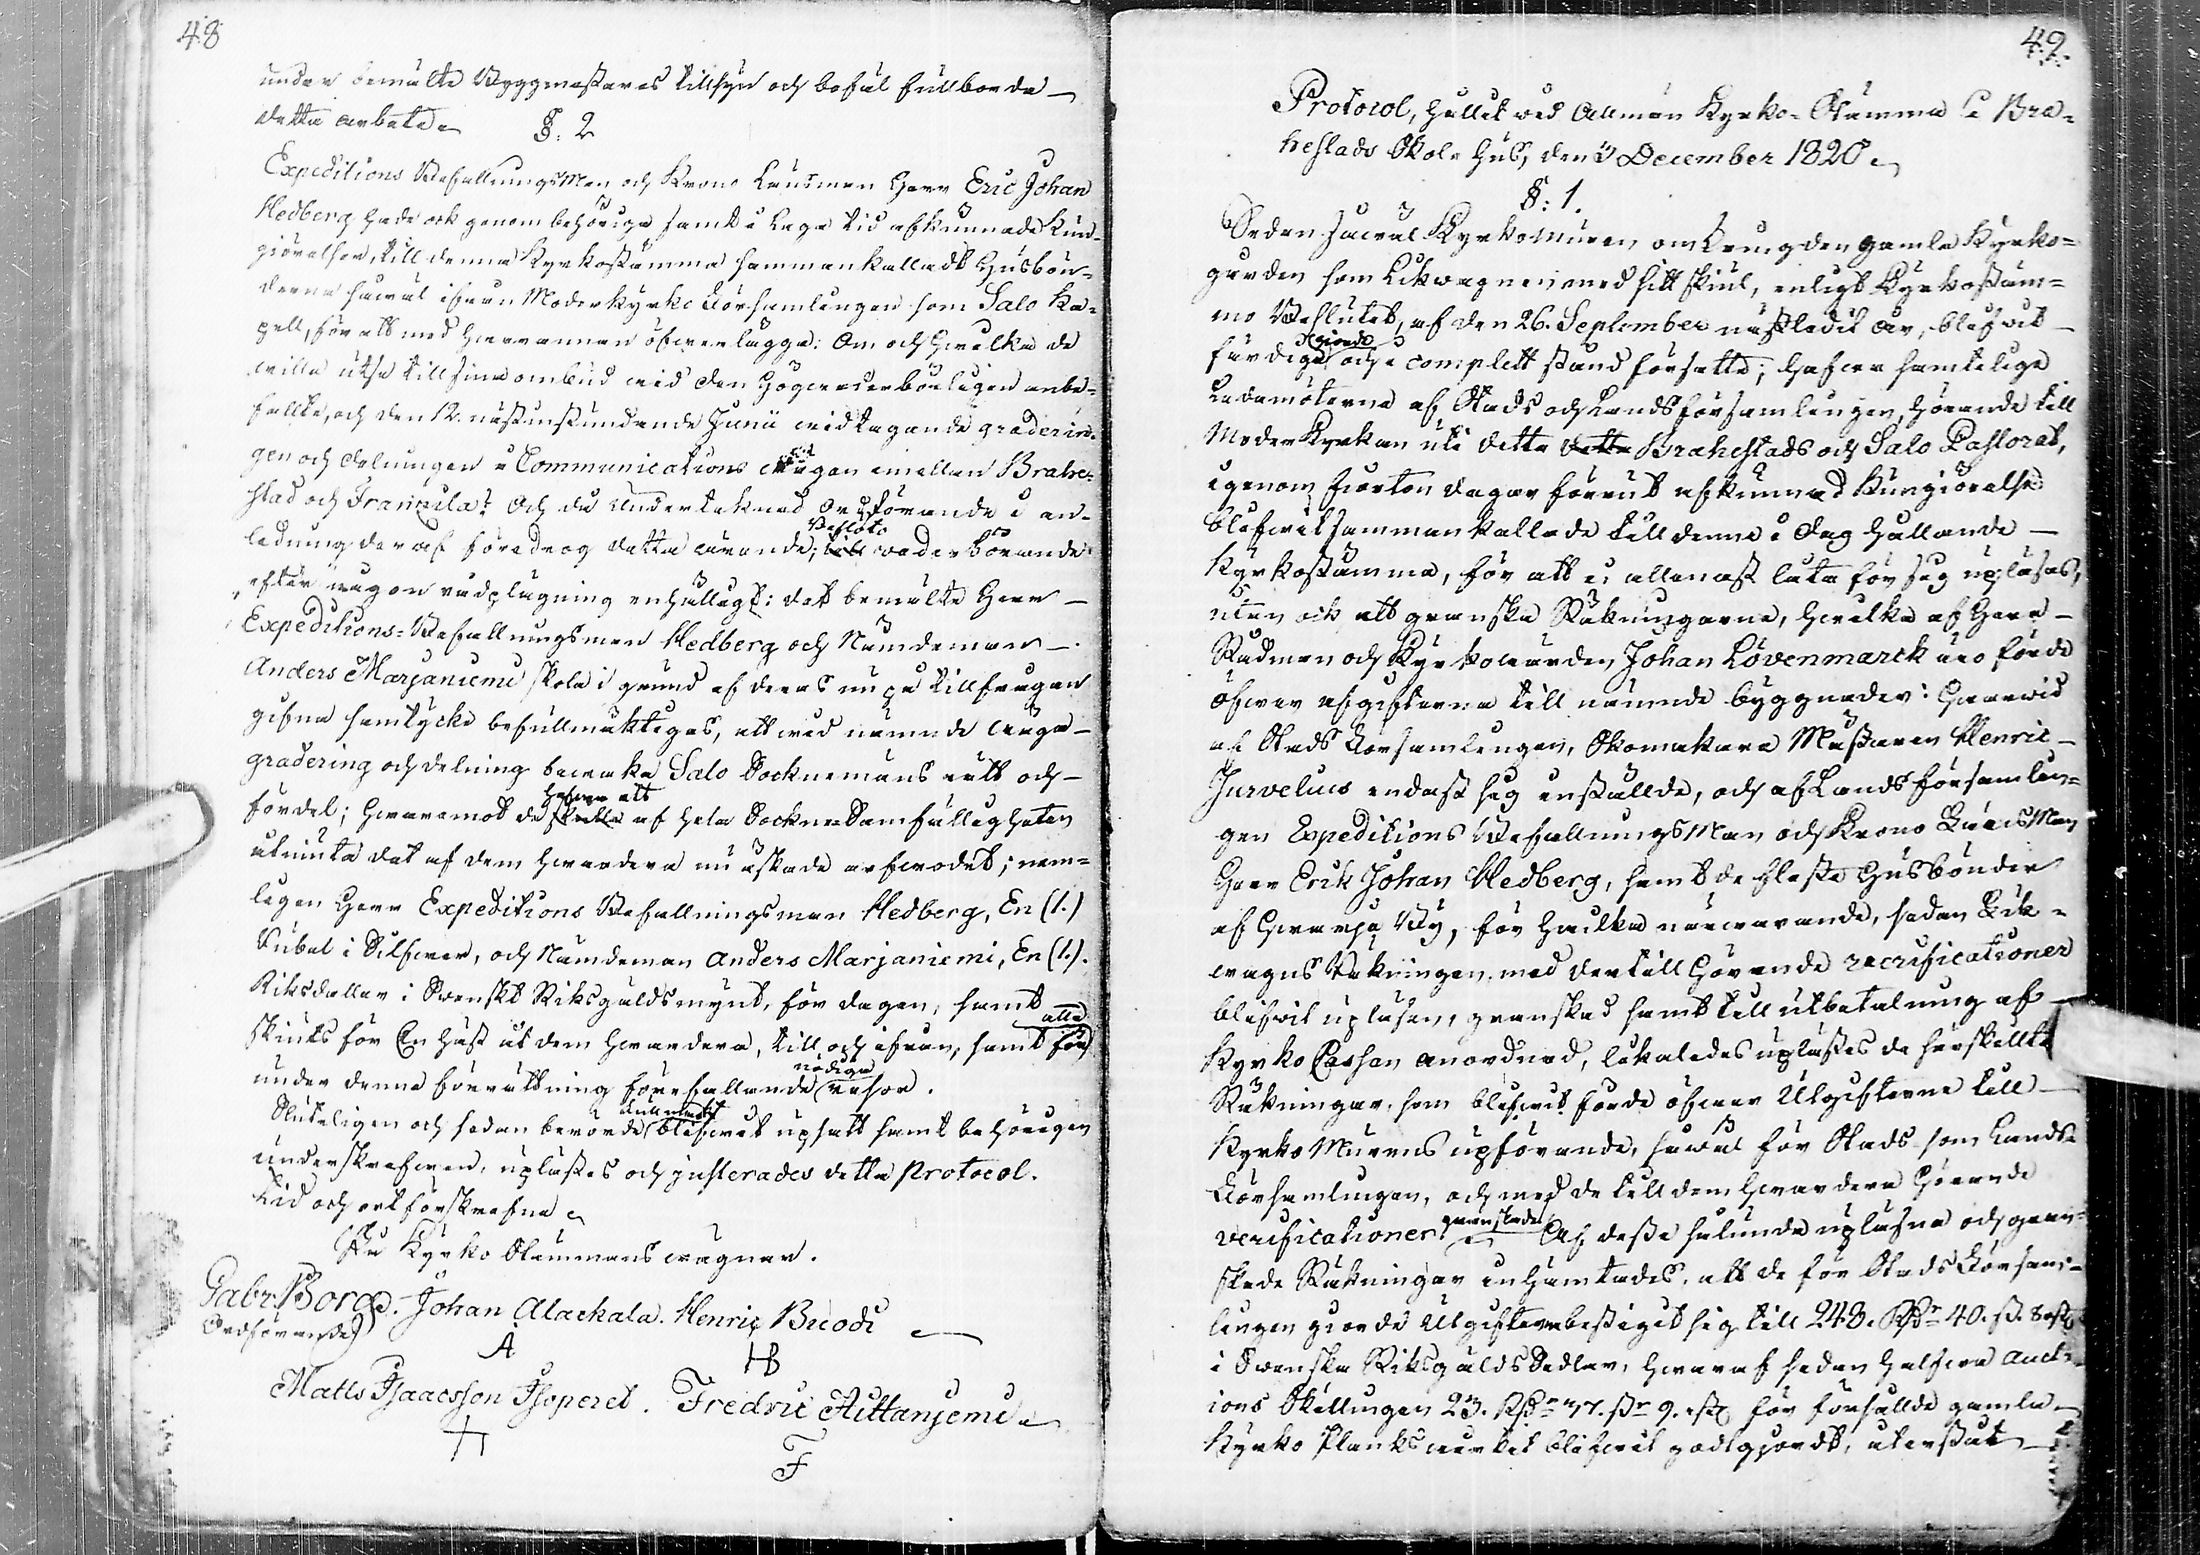 48
under bemälte Byggmästares tillsyn och befäl fullborda
detta arbete.
§: 2
Expeditions Befallningsman och Krono Länsman Herr Eric Johan
Hedberg hade ock genom behörige samt i Laga tid afkunnade Kun-
giörelser, till denna Kyrkostämma sammankalladt Husbön-
derna såwäl ifrån Moderkyrko Församlingen som Salo Ka-
pell, för att med hwarannan öfwerlägga: Om och hwilka de
wille utse till sina ombud wid den Högwederbörligen anbe-
fallte, och den 12. nästinstundande Junii widtagande graderin-
gen och delningen i Communications wägen emellan Brahe-
stad och Frantsila? Och då Undertecknad Ordförande i an-
ledning deraf föredrog detta ärende, Beslöto wederbörande
efter någon rådplägning enhälligt: det bemälte Herr
Expeditions-Befallningsman Hedberg och Nämndeman
Anders Marjaniemi skola i grund af deras nu på tillfrågan
gifna samtycke befullmäktigas, att wid nämnde wäga-
gradering och delning bewaka Salo Socknemäns rätt och
fördel; hwaremot de skulle hafwa att af hela Sockne Samfälligheten
utnjuta det af dem hwardera nu äskade arfwodet; nem-
ligen Herr Expeditions Befallningsman Hedberg, En (1.)
Rubel i Silfwer, och Nämndeman Anders Marjaniemi, En (1.).
Riksdaler i Swenskt Riksgäldsmynt, för dagen, samt
skiuts för En häst åt dem hwardera, till och ifrån, samt för alla
under denna förrättning förefallande nödige resor.
Sluteligen och sedan berörde fullmakt blifwit upsatt samt behörigen
underskrefwen, uplästes och justerades detta Protocol.
Tid och ort förskrefne
På Kyrko Stämmans wägnar.
Gabr. Borg. Johan Alaekala. Henric Buodi
Ordförande
A HB
Matts Isaacsson Isoperet. Fredric Aittanjemi
F
49.
Protocol, hållet wid Allmän Kyrko-Stämma i Bra-
hestads Skole Hus, den 3 December 1820.
§: 1.
Sedan såwäl Kyrkomuren omkring den gamla Kyrko-
gården som Likwagnen med sitt skiul, enligt Kyrkostäm-
mo Beslutet, af den 26. September nästledit år, blifwit
färdige giorde och i complett stånd försatte; hafwa samtelige
Ledamöterna af Stads och Lands församlingen, hörande till
Moder Kyrkan uti detta detta Brahestads och Salo Pastorat,
igenom fiorton dagar förrut afkunnad Kungiörelse
blifwit sammankallade till denne i dag hållande
Kyrkostämma, för att ei allenast låta för sig upläsas,
utan ock att granska Räkningarne, hwilka af Herr
Rådman och Kyrkowärden Johan Lövenmarck äro förde
öfwer afgifterna till nämnde byggnader: Hwarwid
af Stads Församlingen, Skomakare Mästaren Henric
Jurvelius endast sig inställde, och af Lands församlin-
gen Expeditions Befallningsman och Krono Länsman
Herr Erik Johan Hedberg, samt de fleste Husbönder
af hwarje By, för hwilka närwarande, sedan Lik-
wagns Räkningen med dertill hörande vecrificationer
blifwit upläsen, granskad samt till utbetalning af
Kyrko Cassan anordnad, likaledes uplästes de särskillta
Räkningar, som blifwit förde öfwer Utgifterne till
Kyrko Murens upförande, såwäl för Stads som Lands
Församlingen, och med de till dem hwardera hörande
verificationer granskades. Af desse sålunda upläsne och gran-
skade Räkningar inhämtades, att de för Stads Försam-
lingen giorde Utgifterne bestigit sig till 243. Rdr 40. sk. 8 rst
i Swenska Riksgälds Sedlar, hwaraf sedan halfwa Auct-
ions Skillingen 23. Rdr 37. sk 9. rst för försållde gamla
Kyrko Planks wärket blifwit godtgjordt, återstått